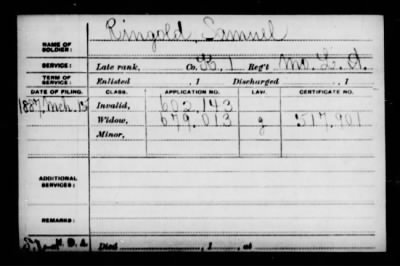 Ringold, Samuel
NAME OF SOLDIER:
SERVICE: Late rank, Co. K, 1 Reg't Mo. L. A.
TERM OF SERVICE: Enlisted , 1 Discharged , 1
DATE OF FILING. CLASS. APPLICATION NO. LAW. CERTIFICATE NO.
1887, Mch. 15 Invalid, 602.143
Widow, 679.013 g 517.901
Minor,
ADDITIONAL SERVICES:
REMARKS:
Died , 1 , at